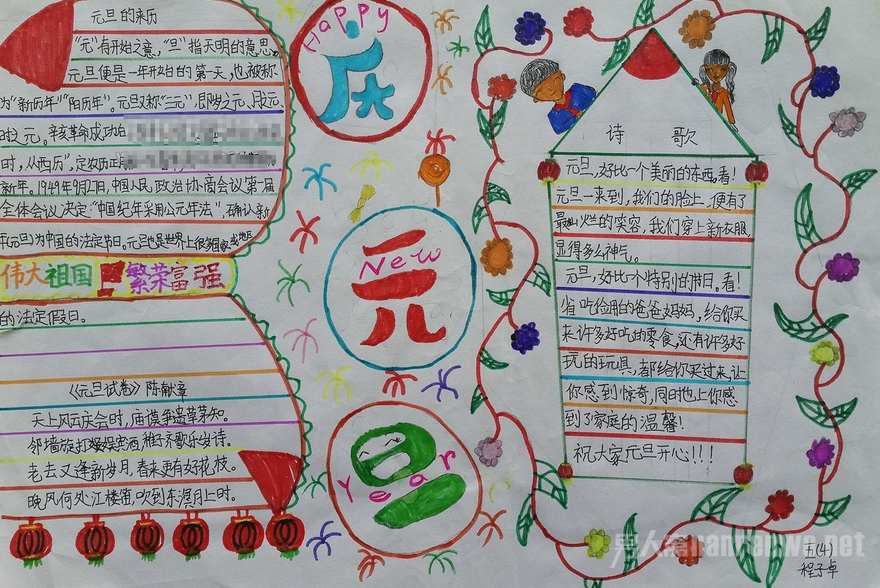 元旦的来历
"元"有开始之意,"旦"指天明的意思。
元旦便是一年开始的第一天,也被称
为"新历年""阳历年"。元旦又称"三元",即岁之元、月之元、
时之元。辛亥革命成功
时,从西历",定农历正
新年。1949年9月27日,中国人民政治协商会议第一届
全体会议决定:"中国纪年采用公元年法",确认新
年(元旦)为中国的法定节日。元旦也是世界上很多国家或地区
伟大祖国 繁荣富强
的法定假日。
《元旦试卷》陈献章
天上风云庆会时,庙谟争遗草茅知。
邻墙旋打娱宾酒,稚子齐歌乐岁诗。
老去又逢新岁月,春来更有好花枝。
晚风何处江楼笛,吹到东溟月上时。
Happy
庆
元
New
旦
Year
诗 歌
元旦,好比一个美丽的东西。看!
元旦一来到,我们的脸上,便有了
最灿烂的笑容,我们穿上新衣服,
显得多么神气。
元旦,好比个特别的节日。看!
省吃俭用的爸爸妈妈,给你买
来许多好吃的零食,还有许多好
玩的玩具,都给你买过来,让
你感到惊奇,同时也让你感
到了家庭的温馨!
祝大家元旦开心!!!
五(4)
程子卓
男人窝nanrenwo.net